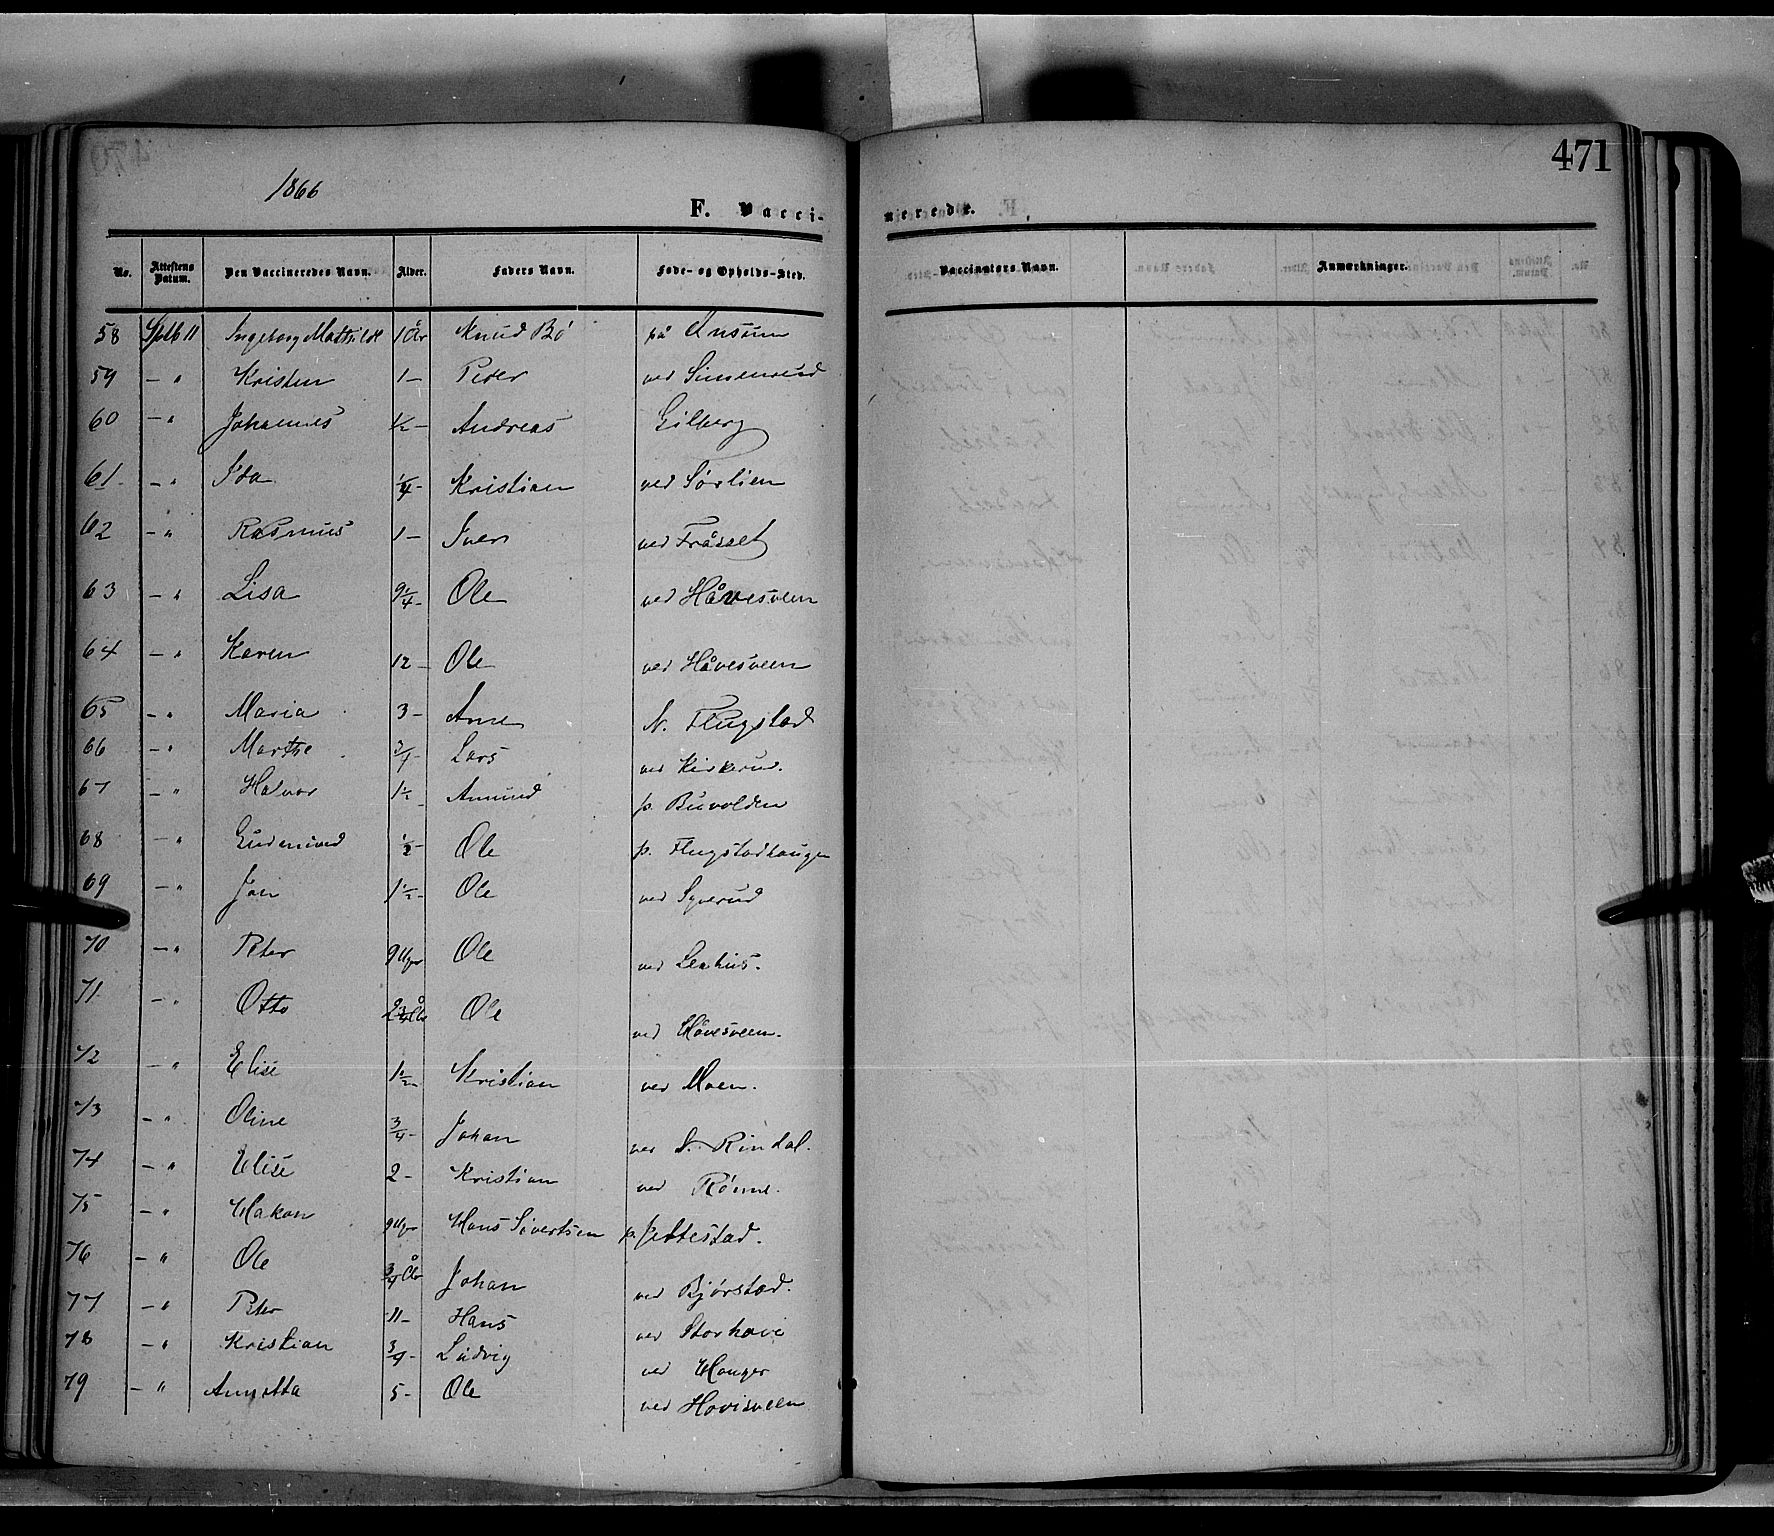 471
1866
F. Vacci-
nerede.
No. Attestens Datum. Den Vaccineredes Navn. Alder. Faders Navn. Føde- og Opholds-Sted. Vaccinators Navn. Anmærkninger.
58 Sptb 11 Ingeborg Mathilde 1 År Knud Bø på Ensum
59 — " Kristen 1 — Peder ved Simenrud
60 — " Johannes 1/2 — Andreas Gilberg
61 — " Ida 1/4 — Kristian ved Sørlien
62 — " Rasmus 1 — Iver ved Fråsset
63 — " Lisa 9 1/4 — Ole ved Håvesveen
64 — " Karen 12 — Ole ved Håvesveen
65 — " Maria 3 — Arne N. Flugstad
66 — " Marthe 3/4 — Lars ved Kirkerud.
67 — " Halvor 1 1/2 — Amund p. Buvolden
68 — " Gudmund 1/2 — Ole p. Flugstadhaugen
69 — " Jon 1 1/2 — Ole ved Syverud
70 — " Peter 9 Uger Ole ved
71 — " Otto 2 3/4 År Ole ved Håvesveen.
72 — " Elise 1 1/2 — Kristian ved Moen.
73 — " Oline 3/4 — Johan ved S. Rindal.
74 — " Elise 2 — Kristian ved Rønne.
75 — " Hakon 9 Uger Hans Sivertsen p. Jettestad.
76 — " Ole 3/4 År Johan ved Bjørstad.
77 — " Peter 11 — Hans ved Storhove
78 — " Kristian 3/4 — Ludvig ved Hauger
79 — " Annetta 5 — Ole ved Hovisveen